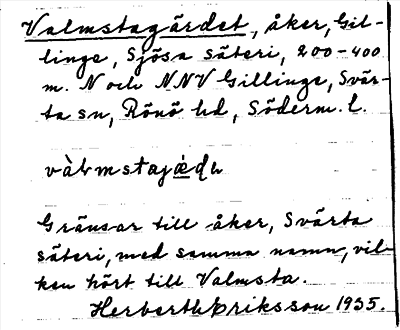 Valmstagärdet, åker, Gil-
linge, Sjösa säteri, 200-400
m. N och NNV Gillinge, Svär-
ta sn, Rönö hd, Söderm. l.
Gränsar till åker, Svärta
säteri, med samma namn, vil-
ken hört till Valmsta.
Herberth Eriksson 1935.